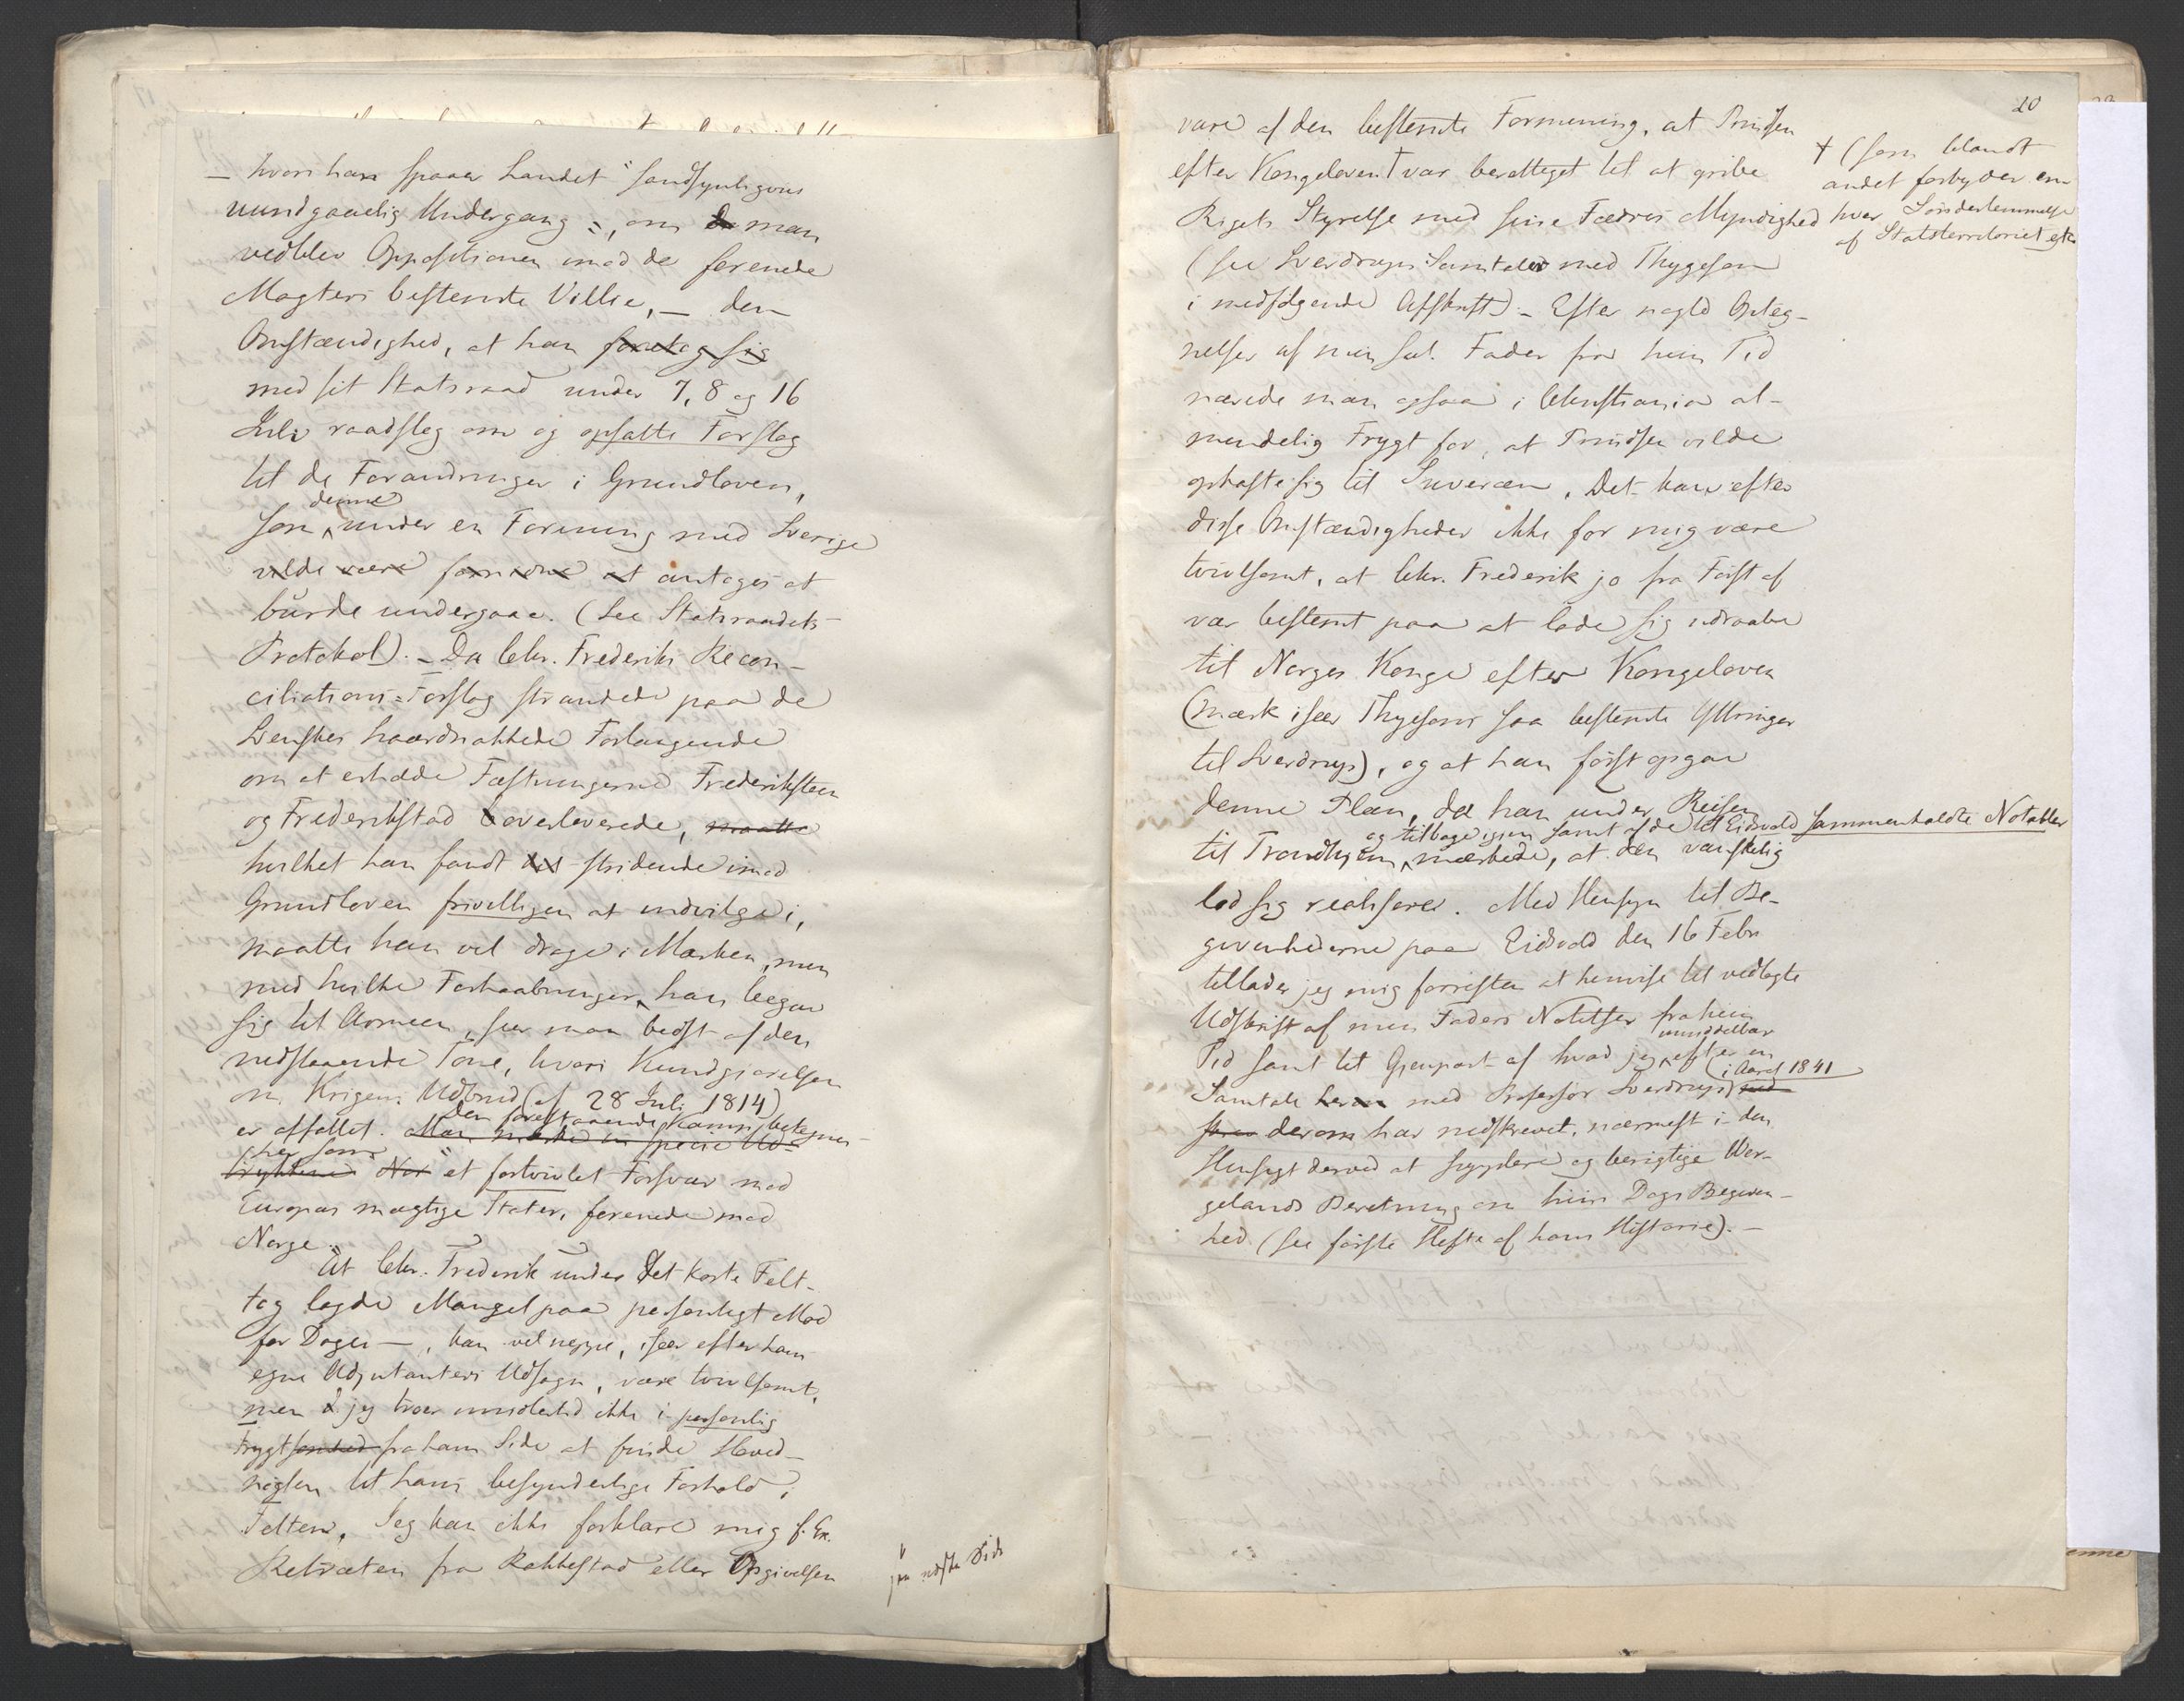 – hvori han spaaer Landet "sandsynligviis
uundgaaelig Undergang", om man
vedblev Oppositionen imod de forenede
Magters bestemte Villie, – den
Omstændighed, at han foretog sig
med sit Statsraad under 7, 8 og 16
Juli raadslog om og opsatte Forslag
til de Forandringer i Grundloven,
denne
som under en Forening med Sverige
vilde være fornødne at antages at
burde undergaae. (See Statsraadets
Protokol). – Da Chr. Frederiks Recon-
ciliations-Forslag strandede paa de
Svenskes haardnakkede Forlangende
om at erholde Fæstningerne Frederiksteen
og Frederikstad overleverede, maatte
hvilket han fandt stridende imod
Grundloven frivilligen at indvilge i,
maatte han vel drage i Marken, men
med hvilke Forhaabninger han begav
sig til Armeen, seer man bedst af den
nedslaaende Tone, hvori Kundgjørelsen
om Krigens Udbrud (af 28 Juli 1814)
den forestaaende Kamp betegnes
er affattet. Man mærke in specie Ud-
her som
trykkene "et fortvivlet Forsvar mod
Europas mægtige Stater, forenede mod
Norge".
At Chr. Frederik under det korte Felt-
tog lagde Mangel paa personligt Mod
for Dagen –, kan vel neppe, især efter hans
egne Adjutanters Udsagn, være tvivlsomt,
men jeg troer imidlertid ikke i personlig
Frygtsomhed fra hans Side at finde Hoved-
nøglen til hans besynderlige Forhold i
Felten. Jeg kan ikke forklare mig f. Ex.
Retræten fra Rakkestad eller Opgivelsen
paa næste Side
20
vare af den bestemte Formening, at Prindsen
efter Kongeloven † var berettiget til at gribe
Rigets Styrelse med sine Fædres Myndighed
† (som blandt
andet forbyder en-
hver Sønderlemmelse
af Statsterritoriet etc
(see Sverdrups Samtaler med Thygeson
i medfølgende Afskrift). – Efter nogle Opteg-
nelser af min sal. Fader fra hiin Tid
nærede man ogsaa i Christiania al-
mindelig Frygt for, at Prindsen vilde
ophøste sig til Suveræn. Det kan efter
disse Omstændigheder ikke for mig være
tvivlsomt, at Chr. Frederik jo fra Først af
var bestemt paa at lade sig udraabe
til Norges Konge efter Kongeloven
(mærk især Thygesons saa bestemte Yttringer
til Sverdrup), og at han først opgav
denne Plan, da han under Reisen
og tilbage igjen samt af de til Eidsvold sammenkaldte Notabler
til Trondhjem mærkede, at den vanskelig
lod sig realisere. Med Hensyn til Be-
givenhederne paa Eidsvold den 16 Febr
tillader jeg mig forresten at henvise til vedlagte
Udskrift af min Faders Notitser fra hiin
umiddelbar
Tid samt til Gjenpart af hvad jeg efter en
(i Aaret 1841
Samtale med Professor Sverdrup)
derom har nedskrevet, nærmest i den
Hensigt derved at supplere og berigtige Wer-
gelands Beretning om hiin Dags Begiven-
hed (see første Hefte af hans Historie). –